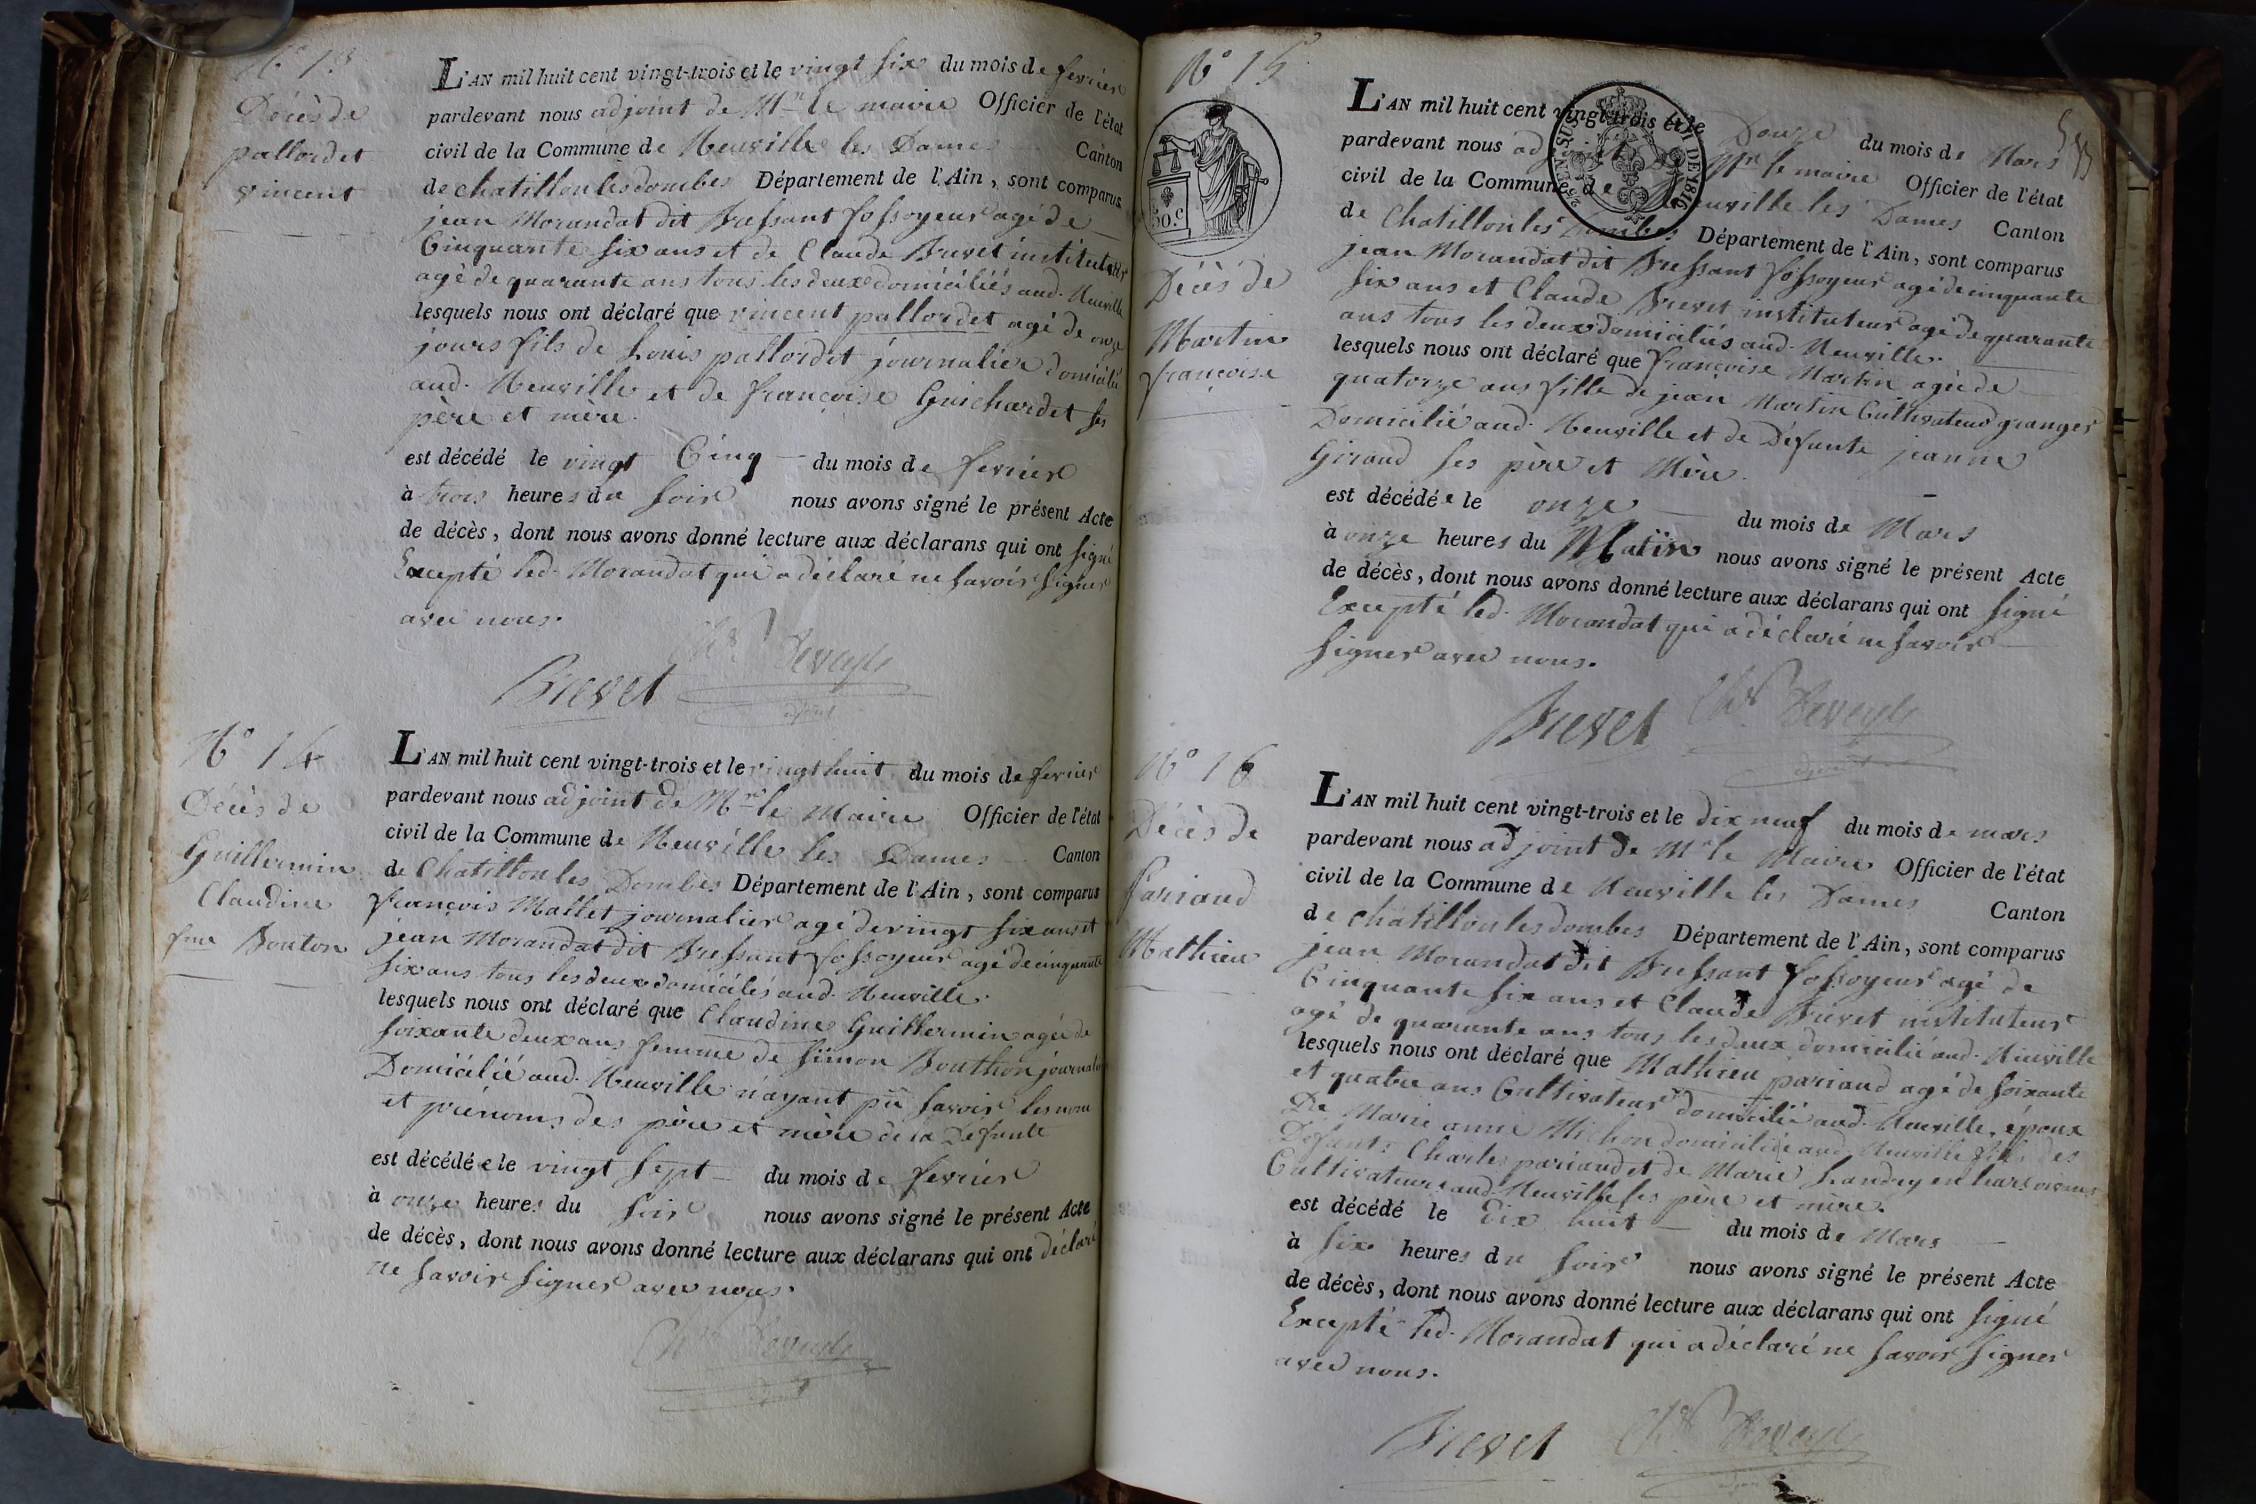 N° 13
Décès de
pallordet
vincent
L'AN mil huit cent vingt-trois et le vingt six du mois de fevrier
pardevant nous adjoint de Mr le maire Officier de l'état
civil de la Commune de Neuville les Dames Canton
de chatillon les dombes Département de l'Ain, sont comparus
jean Morandat dit Bressant fossoyeur agé de
Cinquante six ans et de Claude Brevet instituteur
agé de quarante ans tous les deux domiciliés aud. Neuville
lesquels nous ont déclaré que vincent pallordet agé de onze
jours fils de Louis pallordet journalier domicilié
aud. Neuville et de françoise Guichardet ses
père et mère.
est décédé le vingt Cinq du mois de fevrier
à trois heures du soir nous avons signé le présent Acte
de décès, dont nous avons donné lecture aux déclarans qui ont signé
Excepté led. Morandat qui a déclaré ne savoir signer
avec nous.
Brevet
N° 14
Décès de
Guillermin
Claudine
fme Bouton
L'AN mil huit cent vingt-trois et le vingt huit du mois de fevrier
pardevant nous adjoint de Mr le Maire Officier de l'état
civil de la Commune de Neuville les Dames Canton
de Chatillon les Dombes Département de l'Ain, sont comparus
françois Mallet journalier agé de vingt six ans et
jean Morandat dit Bressant fossoyeur agé de cinquante
six ans tous les deux domiciliés aud. Neuville.
lesquels nous ont déclaré que Claudine Guillermin agée de
soixante deux ans femme de simon Bouthon journalier
Domicilié aud. Neuville n'ayant pû savoir les nom
et prénoms des père et mère de la Défunte
est décédée le vingt sept du mois de fevrier
à onze heures du soir nous avons signé le présent Acte
de décès, dont nous avons donné lecture aux déclarans qui ont déclaré
ne savoir signer avec nous.
N° 15
50 c
Décès de
Martin
françoise
L'AN mil huit cent vingt-trois et le Douze du mois de Mars
pardevant nous adjoint de Mr le maire Officier de l'état
civil de la Commune de Neuville les Dames Canton
de Chatillon les Dombes Département de l'Ain, sont comparus
jean Morandat dit Bressant fossoyeur agé de cinquante
six ans et Claude Brevet instituteur agé de quarante
ans tous les deux domiciliés aud. Neuville.
lesquels nous ont déclaré que françoise Martin agée de
quatorze ans fille de jean Martin Cultivateur granger
Domicilié aud. Neuville et de Défunte jeanne
Giraud ses père et Mère.
est décédée le onze du mois de Mars
à onze heures du Matin nous avons signé le présent Acte
de décès, dont nous avons donné lecture aux déclarans qui ont signé
Excepté led. Morandat qui a déclaré ne savoir
signer avec nous.
Brevet
N° 16
Décès de
Pariaud
Mathieu
L'AN mil huit cent vingt-trois et le dix neuf du mois de mars
pardevant nous adjoint de Mr le Maire Officier de l'état
civil de la Commune de Neuville les Dames Canton
de chatillon les dombes Département de l'Ain, sont comparus
jean Morandat dit Bressant fossoyeur agé de
Cinquante six ans et Claude Brevet instituteur
agé de quarante ans tous les deux domicilié aud. Neuville
lesquels nous ont déclaré que Mathieu pariaud agé de soixante
et quatre ans Cultivateur domicilié aud. Neuville, époux
De Marie anne Michon domiciliée aud. Neuville fils des
Défunts Charles pariaud et de Marie Landry en leurs vivant
Cultivateurs aud. Neuville ses père et mère.
est décédé le Dix huit du mois de Mars
à six heures du soir nous avons signé le présent Acte
de décès, dont nous avons donné lecture aux déclarans qui ont signé
Excepté led. Morandat qui a déclaré ne savoir signer
avec nous.
Brevet